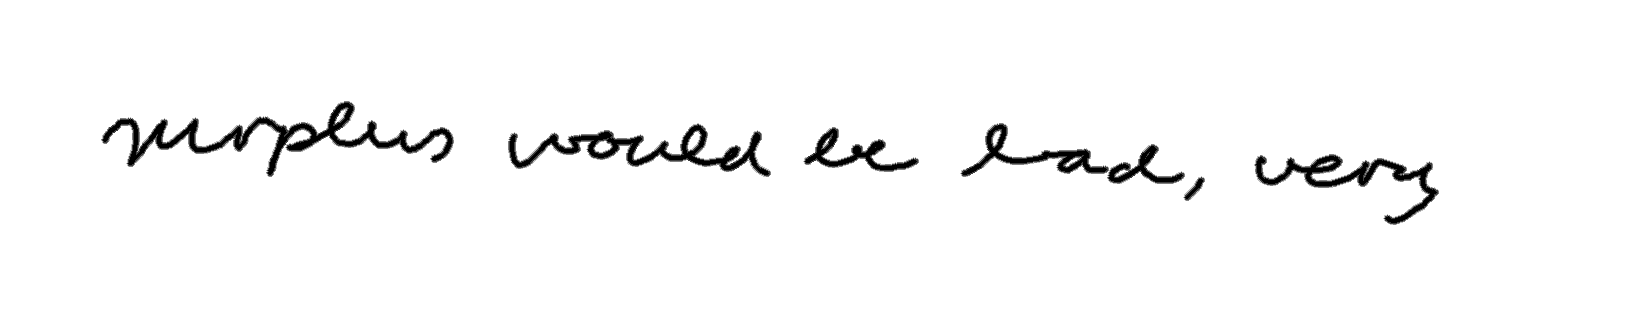 surplus would be bad, very